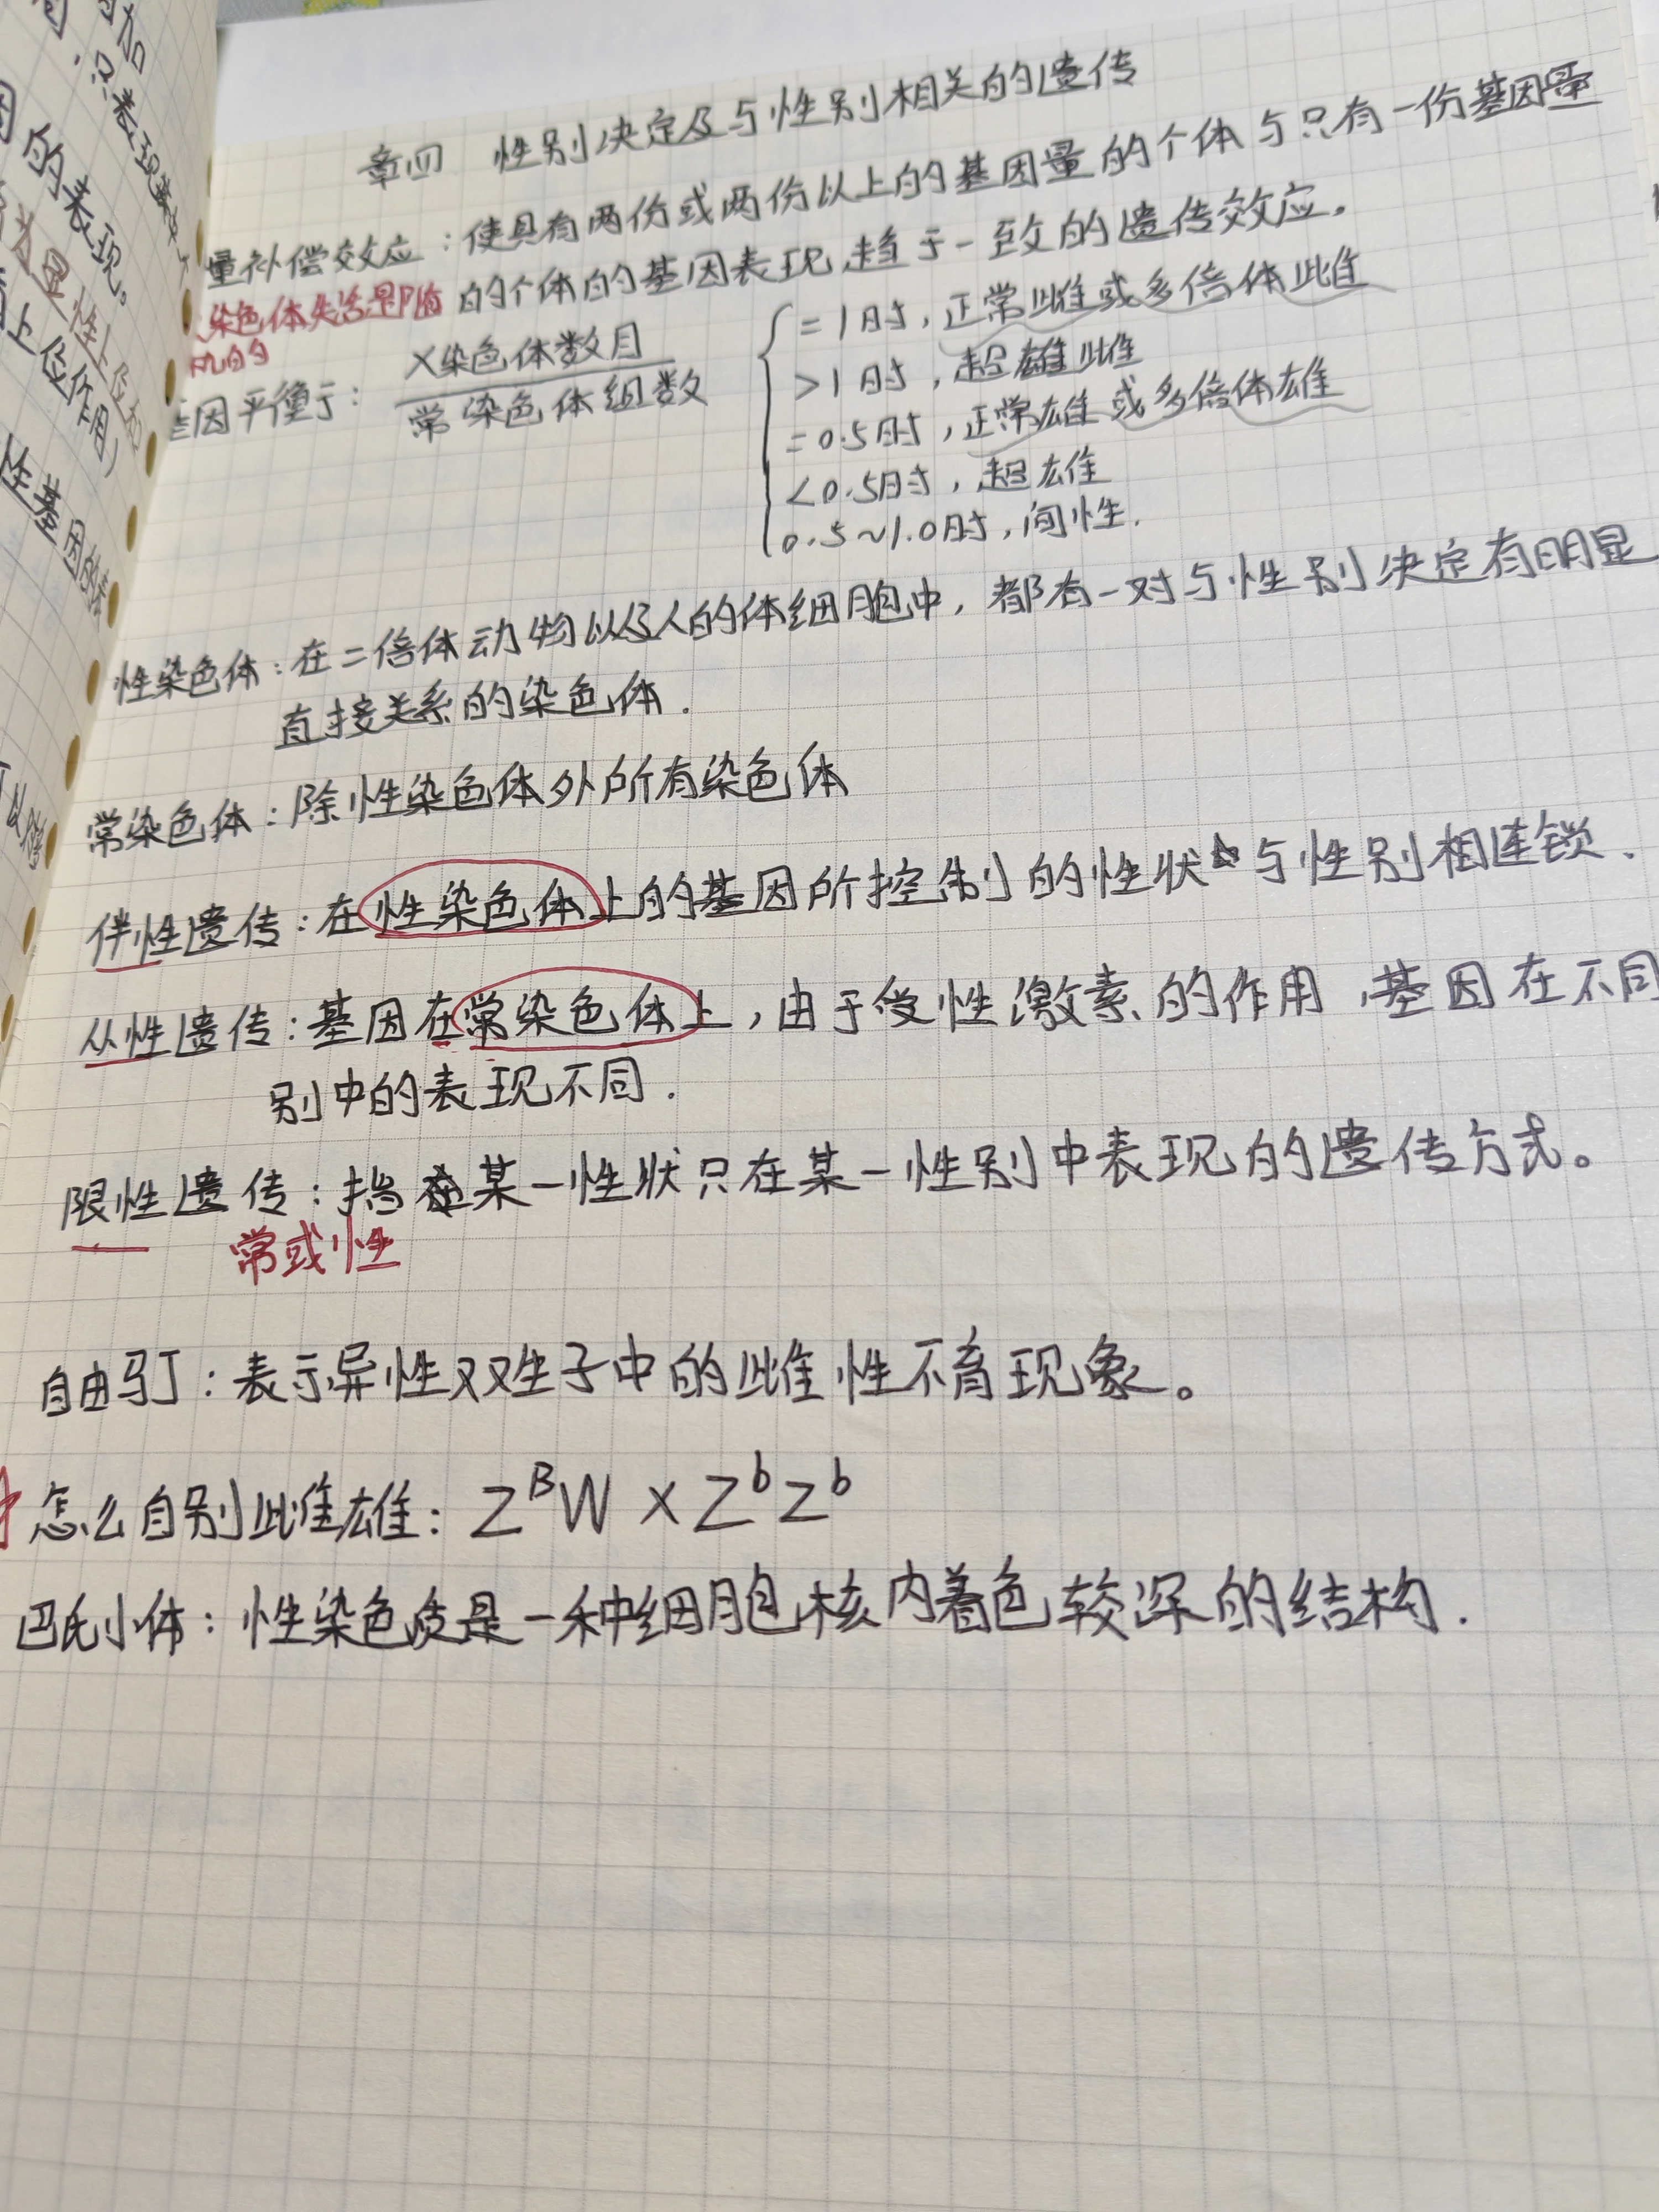 章四 性别决定及与性别相关的遗传
量补偿效应：使具有两份或两份以上的基因量的个体与只有一份基因量
的个体的基因表现趋于一致的遗传效应。
染色体失活是随
机的
因平衡于：X染色体数目
常染色体组数
=1时，正常雌或多倍体雌
>1时，超雌
=0.5时，正常雄或多倍体雄
<0.5时，超雄
0.5~1.0时，间性.
性染色体：在二倍体动物以及人的体细胞中，都有一对与性别决定有明显
直接关系的染色体.
常染色体：除性染色体外所有染色体
伴性遗传：在性染色体上的基因所控制的性状与性别相连锁、
从性遗传：基因在常染色体上，由于受性激素的作用，基因在不同
别中的表现不同.
限性遗传：指某一性状只在某一性别中表现的遗传方式。
常或性
自由马丁：表示异性双生子中的雌性不育现象。
怎么自别雌雄：Z^B W × Z^b Z^b
巴氏小体：性染色质是一种细胞核内着色较深的结构.